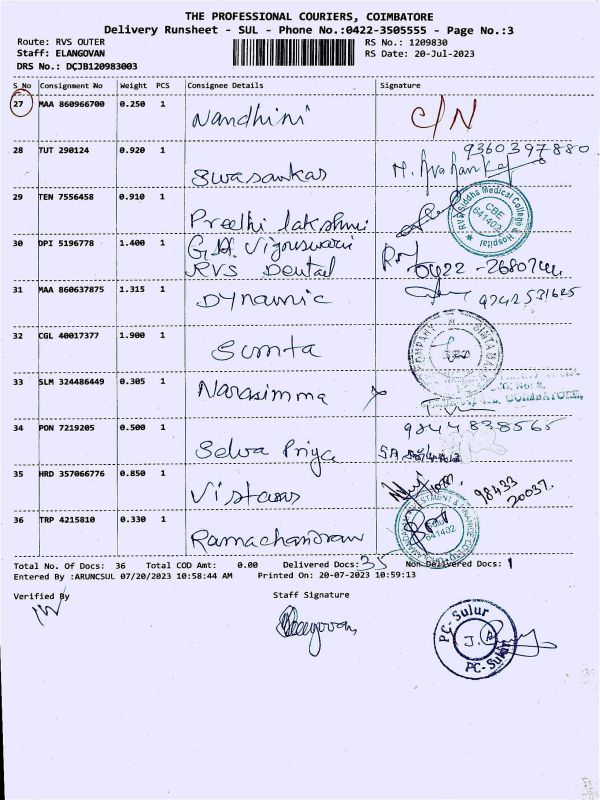 THE PROFESSIONAL COURIERS, COIMBATORE
Delivery Runsheet - SUL - Phone No.:0422-3505555 - Page No.:3
Route: RVS OUTER
RS No.: 1209830
Staff: ELANGOVAN
RS Date: 20-Jul-2023
DRS No.: DCJB120983003
S No Consignment No Weight PCS Consignee Details Signature
27 MAA 860966700 0.250 1 Nandhini C/N
28 TUT 290124 0.920 1 Swasankar 9360397880
29 TEN 7556458 0.910 1 Preethi lakshmi
RVS Siddha Medical College & Hospital CBE 641402
30 DPI 5196778 1.400 1 G.H. Vigneswari
RVS Dental 0422 -2680
31 MAA 860637875 1.315 1 Dynamic 9742531625
32 CGL 40017377 1.900 1 Sumta
33 SLM 324486449 0.305 1 Narasimma
COIMBATORE
34 PON 7219205 0.500 1 Selva Priya 9844838565
35 HRD 357066776 0.850 1 Vistaras 98433
20037.
36 TRP 4215810 0.330 1 Ramachandran
641402
Total No. Of Docs: 36 Total COD Amt: 0.00 Delivered Docs: 35 Non Delivered Docs: 1
Entered By :ARUNCSUL 07/20/2023 10:58:44 AM Printed On: 20-07-2023 10:59:13
Verified By Staff Signature
Elangovan
PC-Sulur
PC-Sulur